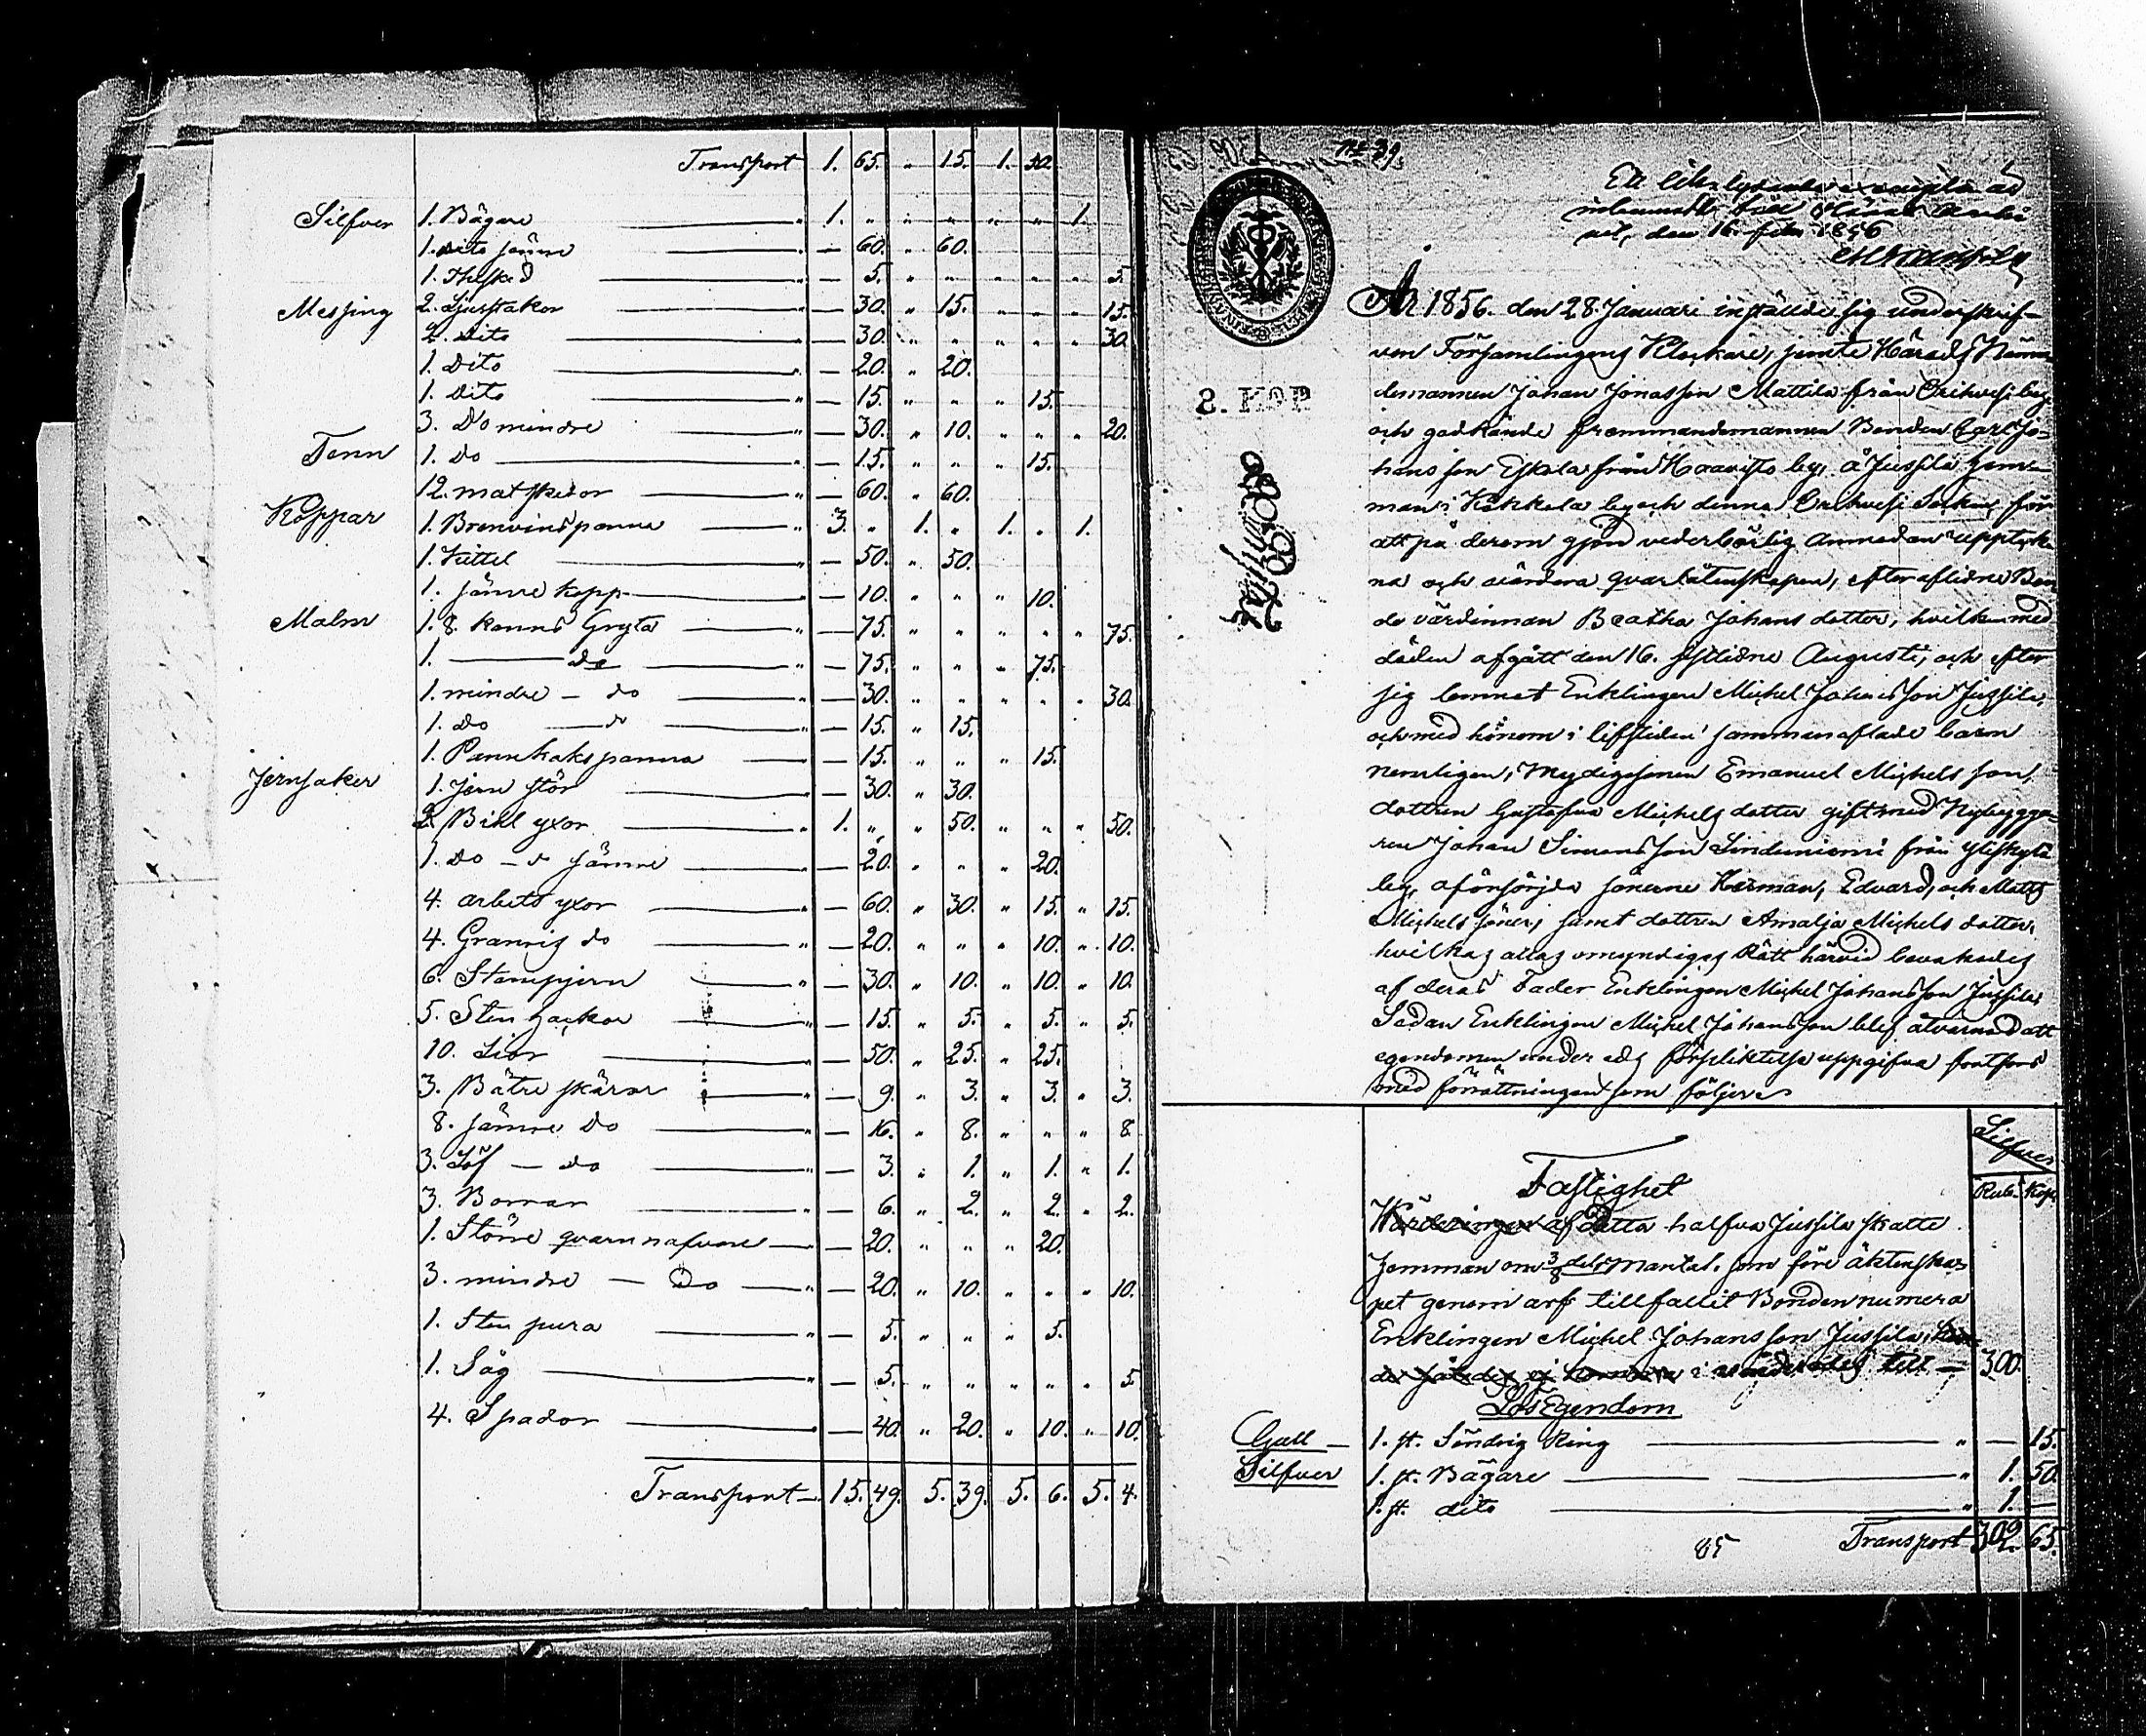 Transport 1. 65. " 15. 1. 50.
Silfver 1. Bägare " 1. " " " " " 1. "
1. dito sämre " — 60. " 60.
1. Thesked " — 5. " " " " " 5.
Messing 2. Ljusstakor " — 30. " 15. " " " 15.
2. dito " — 30. " " " " " 30.
1. Dito " — 20. " 20.
1. Dito " — 15. " " " 15.
3. Do mindre " — 30. " 10. " " " 20.
Tenn 1. Do " — 15. " " " 15.
12. matskedor " — 60. " 60.
Koppar 1. Brenvinspanna " 3. " 1. " 1. " 1.
1. Kittel " — 50. " 50.
1. sämre kopp " — 10. " " " 10.
Malm 1. 8. kanns Gryta " — 75. " " " " " 75.
1. — do " — 75. " " " 75.
1. mindre — do " — 30. " " " " " 30.
1. do — do " — 15. " 15.
1. Pannkakspanna " — 15. " " " 15.
Jernsaker 1. Jern stör " — 30. " 30.
2. Bihl yxor " 1. " " 50. " " " 50.
1. Do — do sämre " — 20. " " " 20.
4. arbets yxor " — 60. " 30. " 15. " 15.
4. Granris do " — 20. " " " 10. " 10.
6. Stampjern " — 30. " 10. " 10. " 10.
5. Sten hackor " — 15. " 5. " 5. " 5.
10. Lior " — 50. " 25. " 25.
3. Bätre skäror " — 9. " 3. " 3. " 3.
8. sämre Do " — 16. " 8. " " " 8.
3. Löf — do " — 3. " 1. " 1. " 1.
3. Borrar " — 6. " 2. " 2. " 2.
1. Större qvarnnafvare " — 20. " " " 20.
3. mindre — Do " — 20. " 10. " " " 10.
1. Sten pura " — 5. " " " 5.
1. Såg " — 5. " " " " " 5.
4. Spador " — 40. " 20. " 10. " 10.
Transport 15. 49. 5. 39. 5. 6. 5. 4.
No 39.
Ett lika lydande exemplar är
den 16. febr. 1856
2. KOP
År 1856. den 28. Januari inställde sig underskrif-
ven Församlingens Klockare, jemte Härads Nämn
demannen Johan Jonasson Mattila från Orihvesi by
och godkände fremmandemannen Bonden Carl Jo-
hansson Eskola från Haavisto by, å Jussila hem-
man i Kåkkola by och denna Orihvesi Socken, för
att på derom gjord vederbörlig anmodan upptek
na och värdera qvarlåtenskapen, efter aflidne Bon
de värdinnan Beatha Johans dotter, hvilken med
döden afgått den 16. sistlidne Augusti, och efter
sig lemnat Enklingen Michel Johansson Jussila,
och med honom i lifstiden sammanaflade barn
nemligen, Myndige sonen Emanuel Michels son,
dottren Gustafva Michels dotter gift med Nybygga-
ren Johan Simonsson Linduniemi från
by, oförsörjda sönerne Herman, Edvard, och Matts
Michels söner, samt dottren Amalja Michels dotter,
hvilkas allas omyndiges Rätt härvid bevakades
af deras Fader Enklingen Michel Johansson Jussila;
Sedan Enklingen Michel Johansson blef åtvarnad att
egendomen under eds förpliktelse uppgifva fortfors
med förrättningen som följer
Silfver
Rub. Kop.
Fastighet
Värderingen af Detta halfva Jussila skatte
hemman om 3/8 dels Mantal. som före äktenska-
pet genom arf tillfallit Bonden numera
Enklingen Michel Johansson Jussila,
värderades till — 300.
Lös Egendom
Gull — 1. st. Söndrig Ring " — 15.
Silfver 1. st. Bägare " 1. 50.
1. st. dito " 1. —
85 Transport 302. 65.